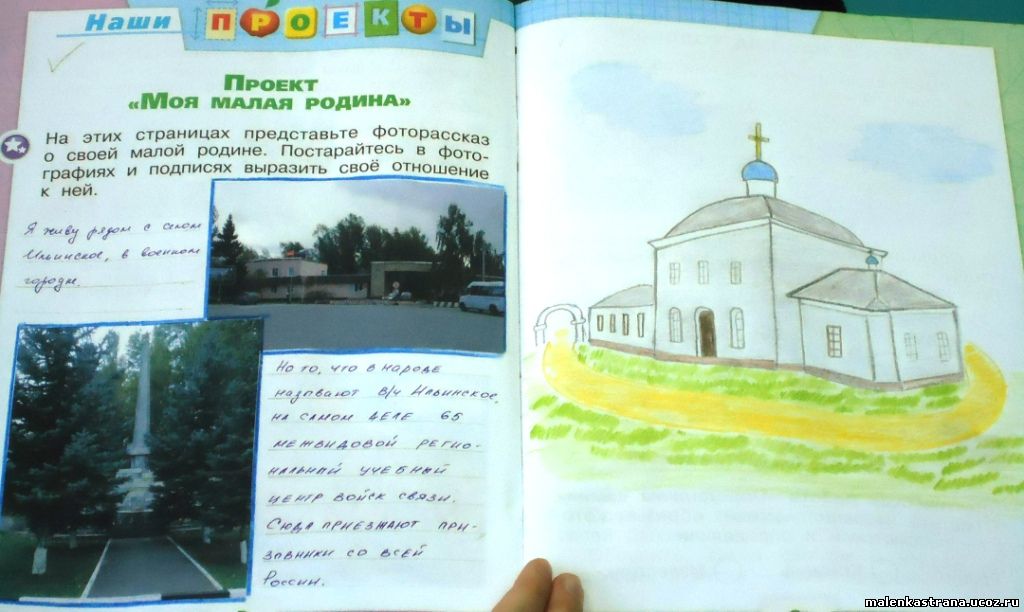 Наши ПРОЕКТЫ
Проект
«Моя малая родина»
На этих страницах представьте фоторассказ
о своей малой родине. Постарайтесь в фото-
графиях и подписях выразить своё отношение
к ней.
Я живу рядом с селом
Ильинское, в военном
городке.
Но то, что в народе
называют в/ч Ильинское,
на самом деле 65
межвидовой регио-
нальный учебный
центр войск связи.
Сюда приезжают при-
зовники со всей
России.
malenkastrana.ucoz.ru